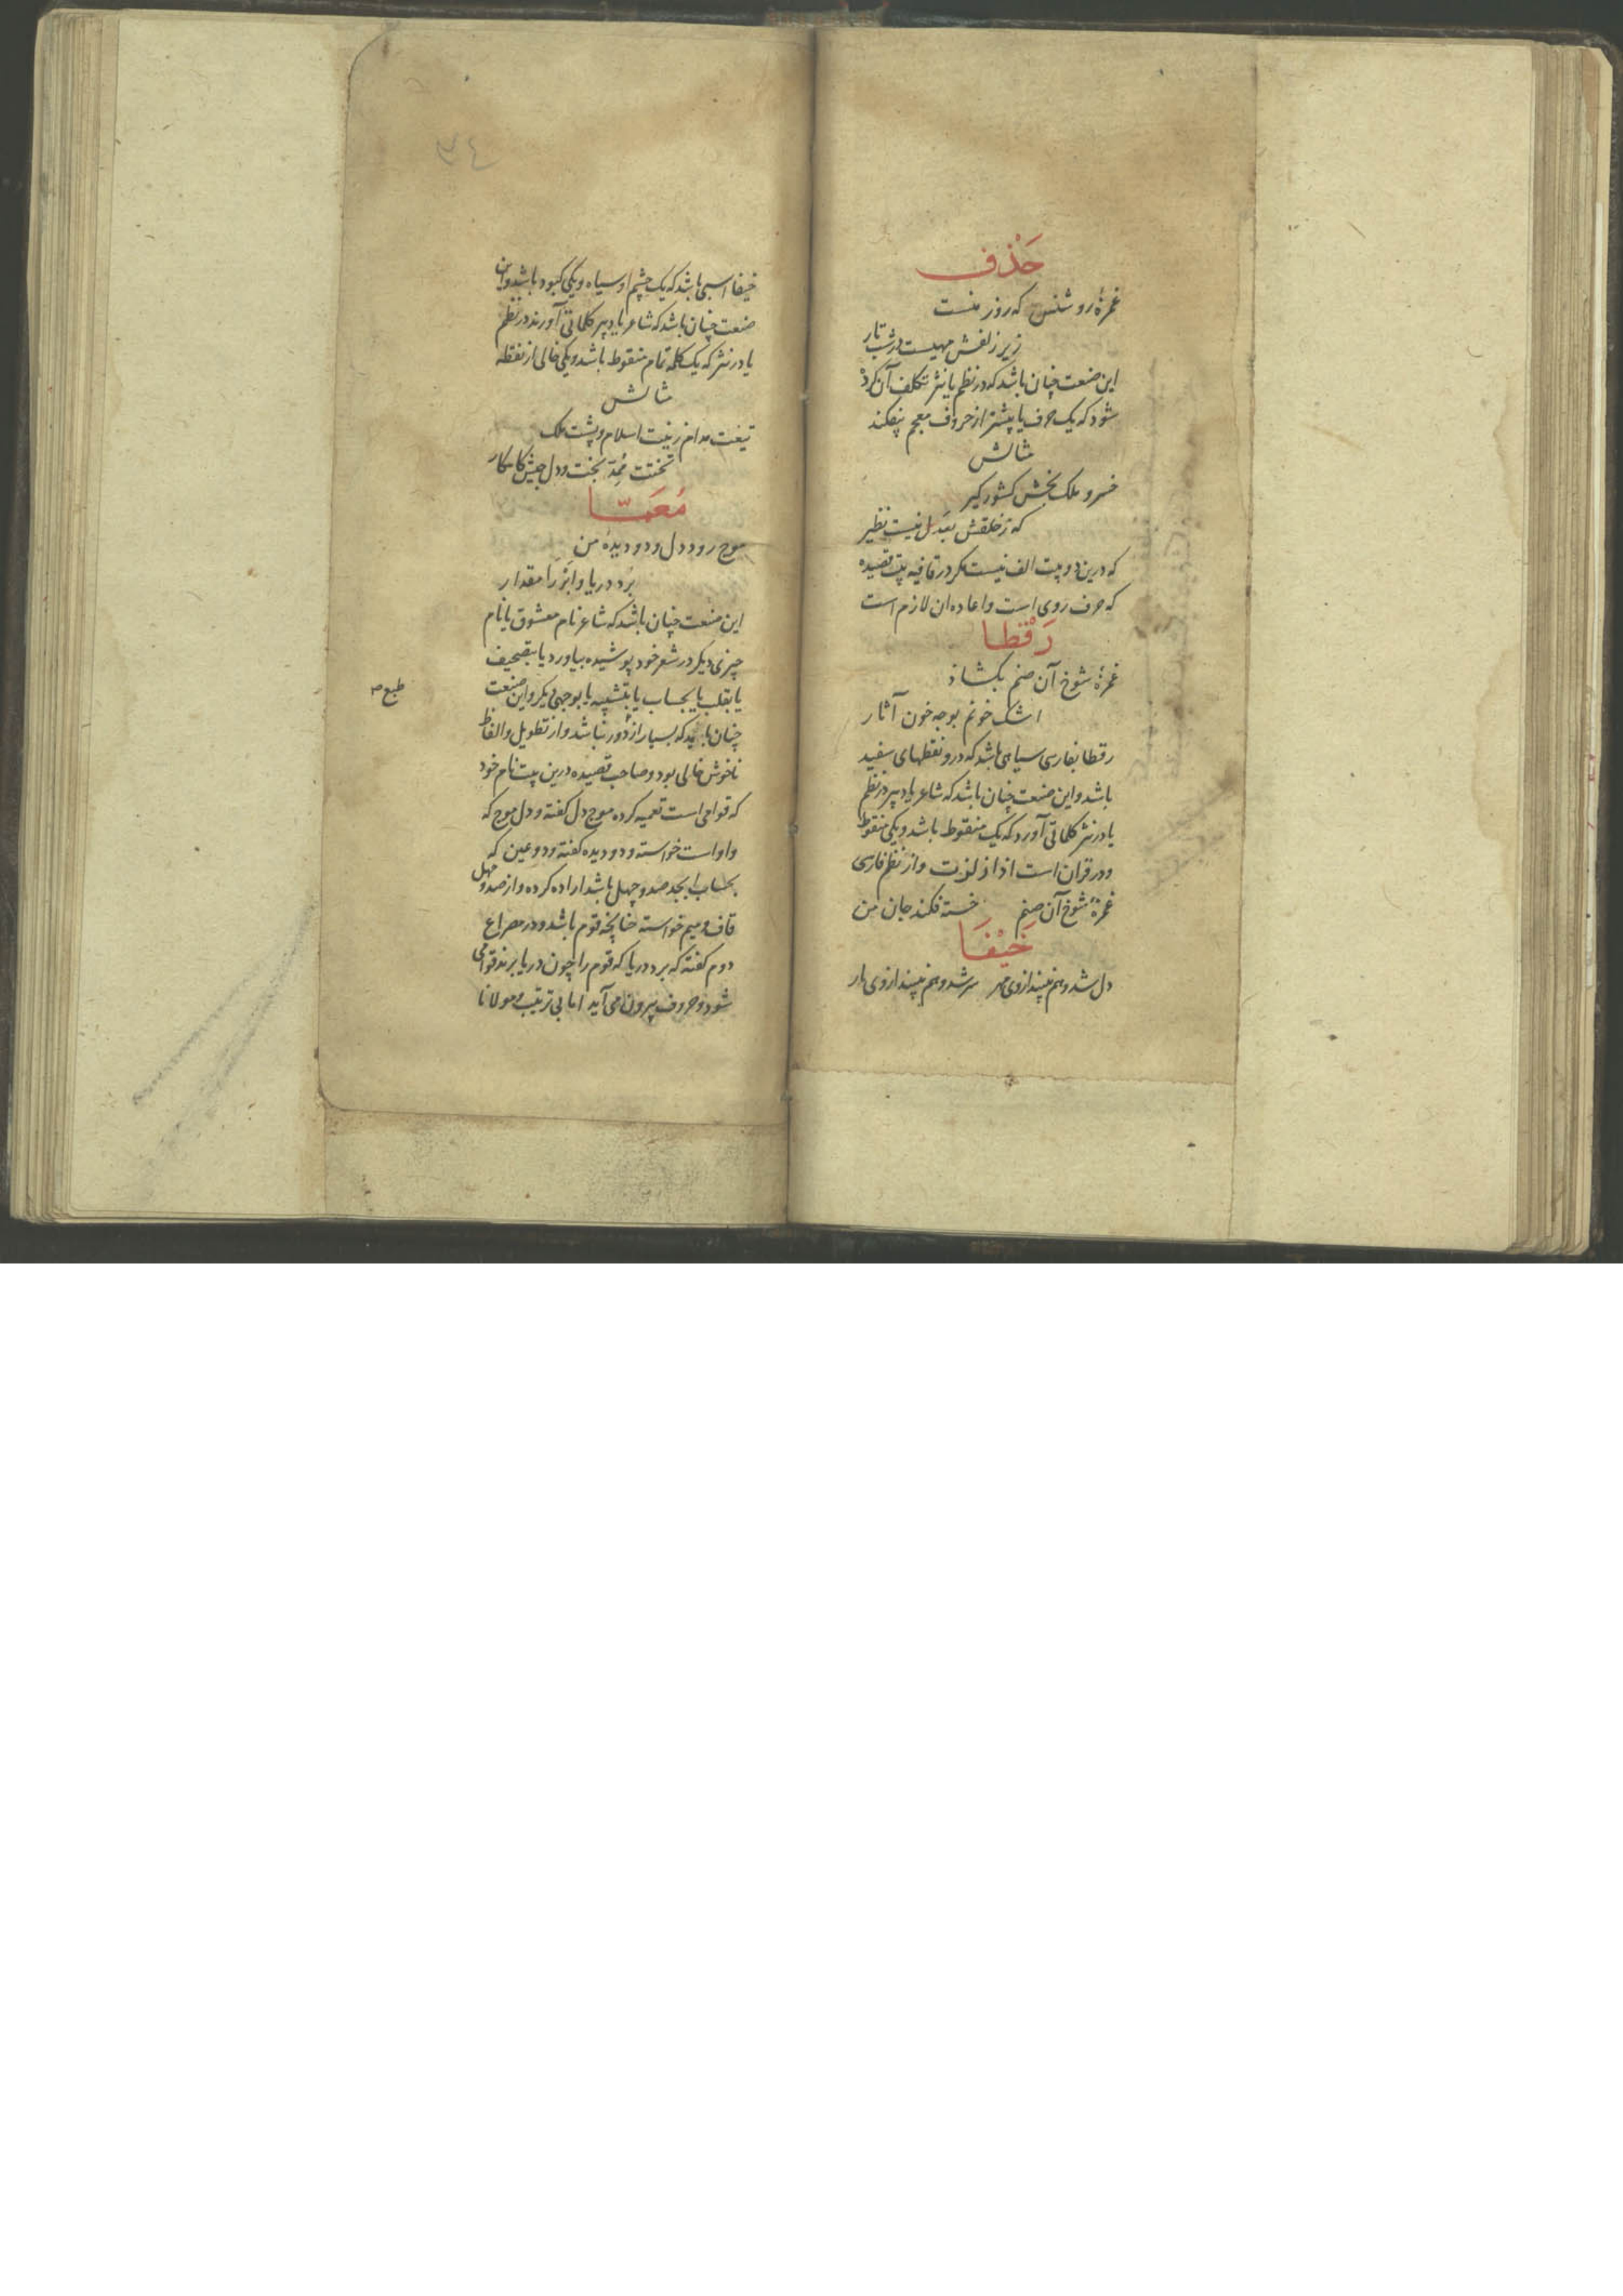 حَذْف
غمزهٔ روشنس که روز منست
زیر زلفش مهیست در شب تار
این صنعت چنان باشد که در نظم یا نثر تکلف آن کرده
شود که یک حرف یا بیشتر از حروف معجم بیفکند
مثالش
خسرو ملک بخش کشور کیر
که ز خلقش بعدل نیست نظیر
که درین دو بیت الف نیست مکر در قافیه بیت قصیده
که حرف روی است و اعاده ان لازم است
رَقْطا
غمزهٔ شوخ آن صنم بکشاد
اشک خونم بوجه خون آثار
رقطا بفارسی سیاهی باشد که درو نقطهای سفید
باشد و این صنعت چنان باشد که شاعر یا دبیر در نظم
یا در نثر کلماتی آورد که یک منقوط باشد و یکی منقوط
و در قران است اذا زلزلت و از نظم فارسی
غمزهٔ شوخ آن صنم خسته فکند جان من
خَیْفَا
دل شد و هم نبیند از وی مهر سر شد و هم نبیند از وی دار
۳٤
خیفا اسبی باشد که یک چشم او سیاه و یکی کبود باشد و این
صنعت چنان باشد که شاعر یا دبیر کلماتی آورند در نظم
یا در نثر که یک کلمه تمام منقوط باشد و یکی خالی از نقطه
مثالش
تیغت مدام زینت اسلام و پشت ملک
تختت بخت و دل جیش کامکار
مُعَمّا
موج رود دل و دو دیده من
بُرد دریا و ابر را مقدار
این صنعت چنان باشد که شاعر نام معشوق یا نام
چیزی دیکر در شعر خود پوشیده بیاورد یا بتصحیف
یا بقلب یا بحساب یا بتشبیه یا بوجهی دیکر و این صنعت
طبع
چنان باید که بسیار از دور نباشد و از تطویل و الفاظ
ناخوش خالی بود و صاحب قصیده درین بیت نام خود
که قوامی است تعمیه کرده موج دل کفته و دل موج که
واو است خواسته و دو دیده کفته و دو عین که
بحساب ابجد صد و چهل باشد اراده کرده و از صد و چهل
قاف و میم خواسته چنانچه قوم باشد و در مصراع
دوم کفته که برد دریا که قوم را چون دریا برند قوامی
شود و حروف بیرون می آید اما بی ترتیب و مولانا